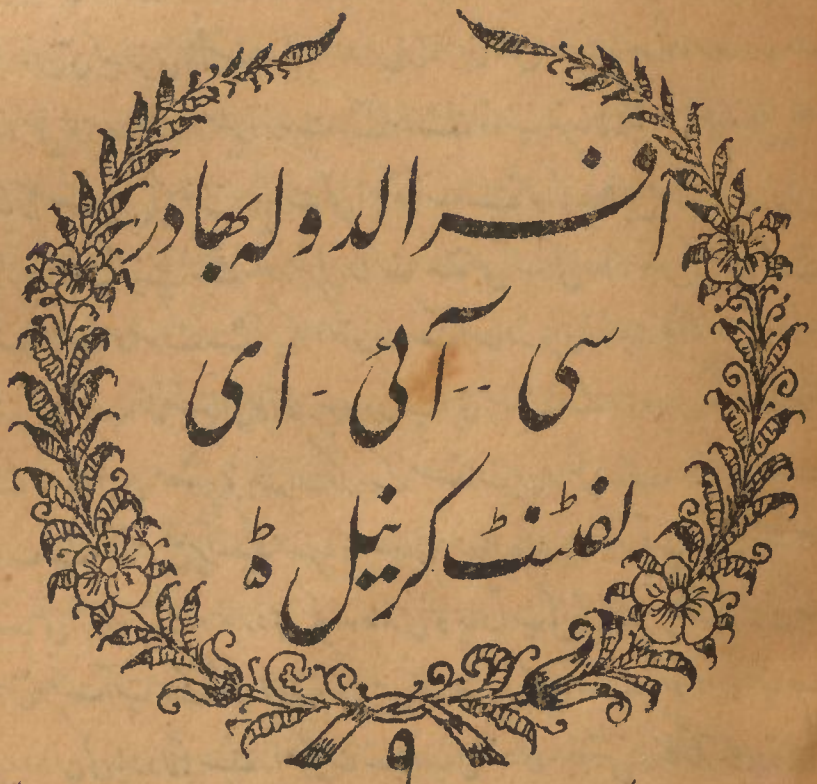 افسر الدولہ بھادر
سی - آئی - ای
لفٹنٹ کرنیل
و